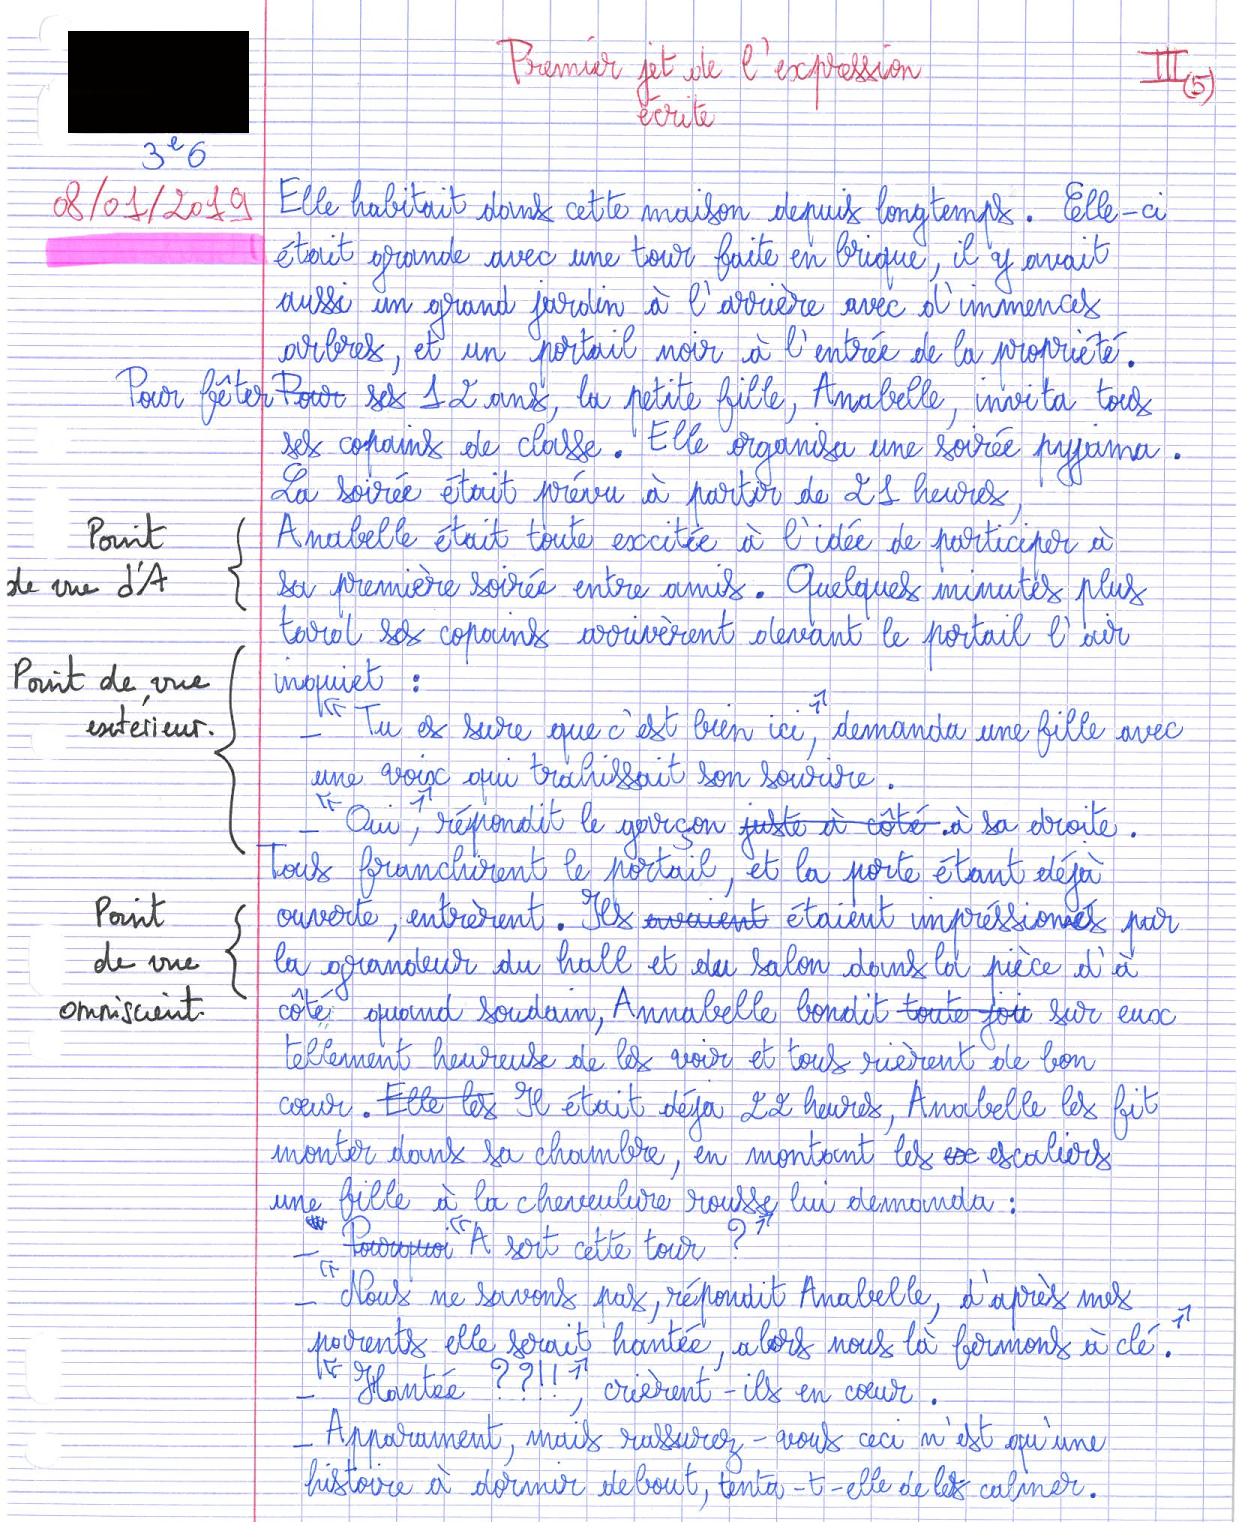 Premier jet de l'expression
écrite
III(5)
3e6
08/01/2019
Elle habitait dans cette maison depuis longtemps. Elle-ci
était grande avec une tour faite en brique, il y avait
aussi un grand jardin à l'arrière avec d'immences
arbres, et un portail noir à l'entrée de la propriété.
Pour fêter Pour ses 12 ans, la petite fille, Anabelle, invita tous
ses copains de classe. Elle organisa une soirée pyjama.
La soirée était prévu à partir de 21 heures,
Point
de vue d'A
Anabelle était toute excitée à l'idée de participer à
sa première soirée entre amis. Quelques minutes plus
tard ses copains arrivèrent devant le portail l'air
Point de vue
extérieur.
inquiet :
_ " Tu es sure que c'est bien ici", demanda une fille avec
une voix qui trahissait son sourire.
_ " Oui", répondit le garçon juste à côté. à sa droite.
Tous franchirent le portail, et la porte étant déjà
Point
de vue
omniscient.
ouverte, entrèrent. Ils avaient étaient impréssionnés par
la grandeur du hall et du salon dans la pièce d'à
côté quand soudain, Annabelle bondit toute joie sur eux
tellement heureuse de les voir et tous rièrent de bon
cœur. Elle les Il était déja 22 heures, Anabelle les fit
monter dans sa chambre, en montant les esc escaliers
une fille à la cheveulure rousse lui demanda :
_ Pourquoi " A sert cette tour ?"
_ " Nous ne savons pas, répondit Anabelle, d'après mes
parents elle serait hantée, alors nous la fermons à clé."
_ " Hantée ??!!", crièrent-ils en cœur.
_ Apparament, mais rassurez-vous ceci n'est qu'une
histoire à dormir debout, tenta-t-elle de les calmer.